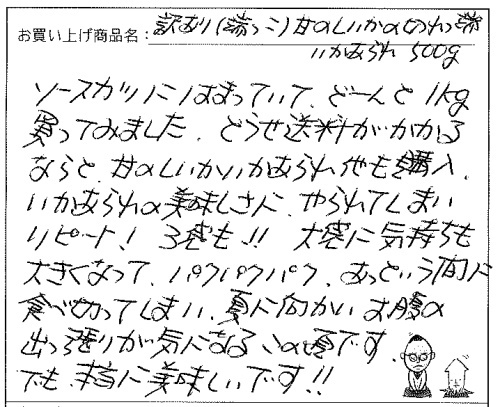 お買い上げ商品名：訳あり(端っこ)甘のしいかの切れっ端
いかあられ 500g
ソースカツにはまっていて、どーんと1kg
買ってみました。どうせ送料がかかる
ならと、甘のしいかいかあられ他も購入。
いかあられの美味しさに、やられてしまい
リピート! 3袋も!! 大袋に気持ちも
大きくなって、パクパクパク、あっという間に
食べ切ってしまい、夏に向かいお腹の
出っ張りが気になるこの頃です。
でも、本当に美味しいです!!